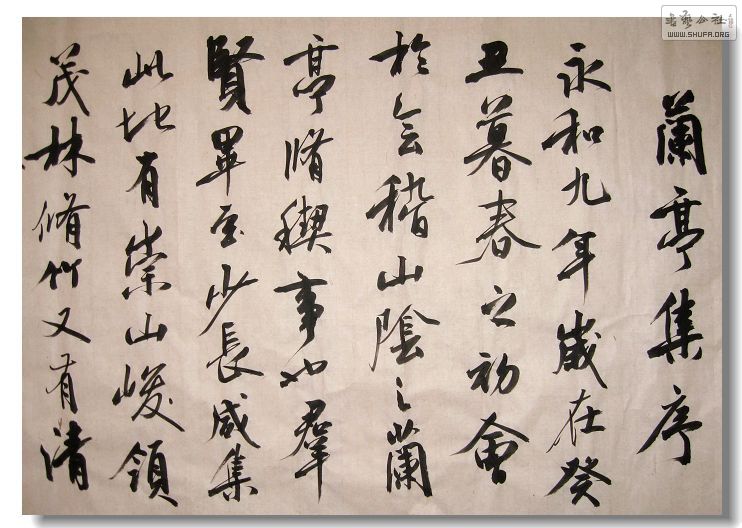 蘭亭集序
永和九年歲在癸
丑暮春之初會
於會稽山陰之蘭
亭脩稧事也羣
賢畢至少長咸集
此地有崇山峻領
茂林脩竹又有清
书艺公社
WWW.SHUFA.ORG